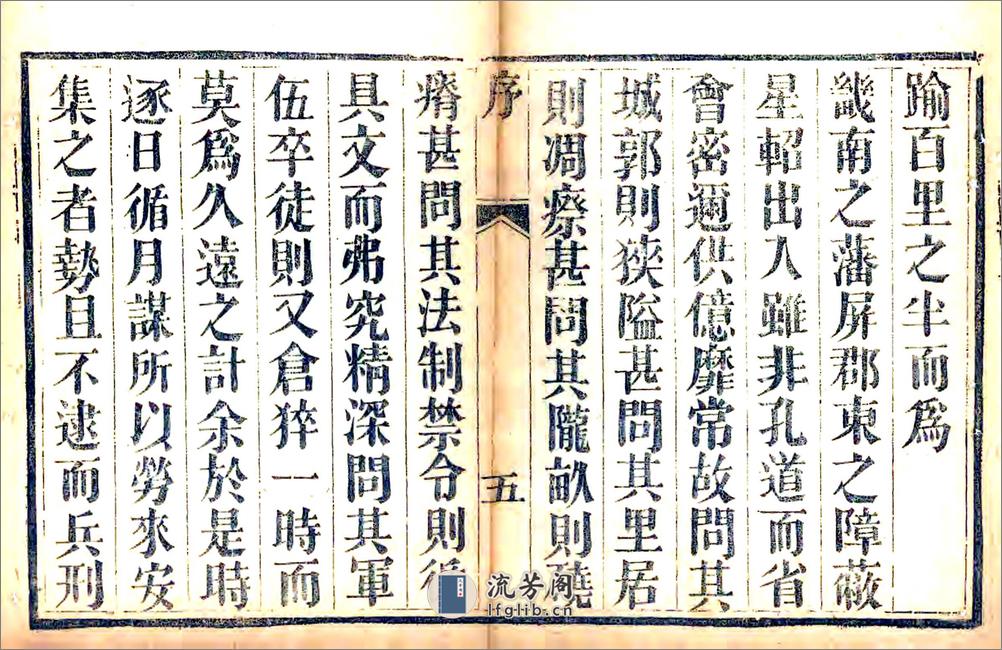 踰百里之半而爲
畿南之藩屏郡東之障蔽
星軺出入雖非孔道而省
會密邇供億靡常故問其
城郭則狹隘甚問其里居
則凋瘵甚問其隴畝則磽
序
五
瘠甚問其法制禁令則循
具文而弗究精深問其軍
伍卒徒則又倉猝一時而
莫爲久遠之計余於是時
逐日循月謀所以勞來安
集之者勢且不逮而兵刑
流芳阁
lfglib.cn